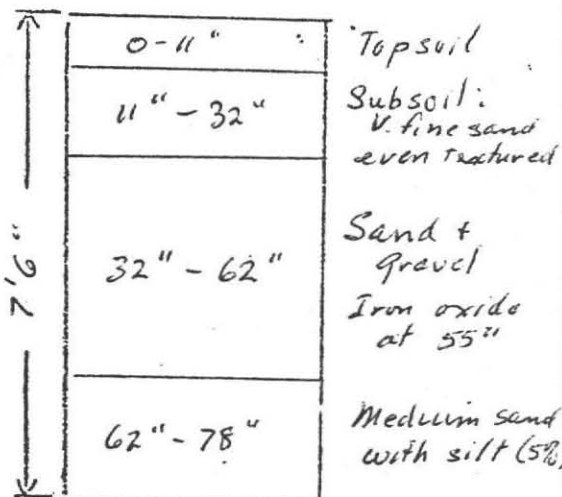 7'6"
0-11"
Topsoil
11" - 32"
Subsoil:
V. fine sand
even textured
32" - 62"
Sand +
gravel
Iron oxide
at 55"
62" - 78"
Medium sand
with silt (5%)